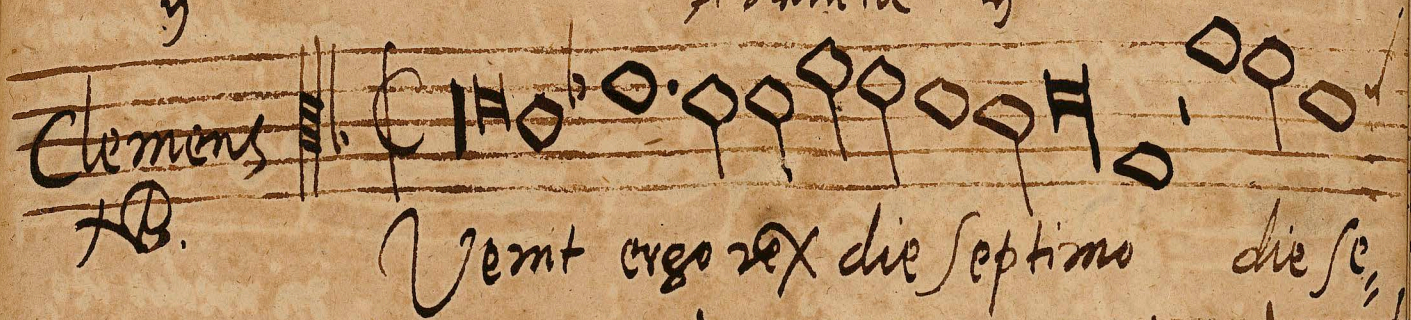 Clemens
B.
Venit ergo rex die septimo die se„